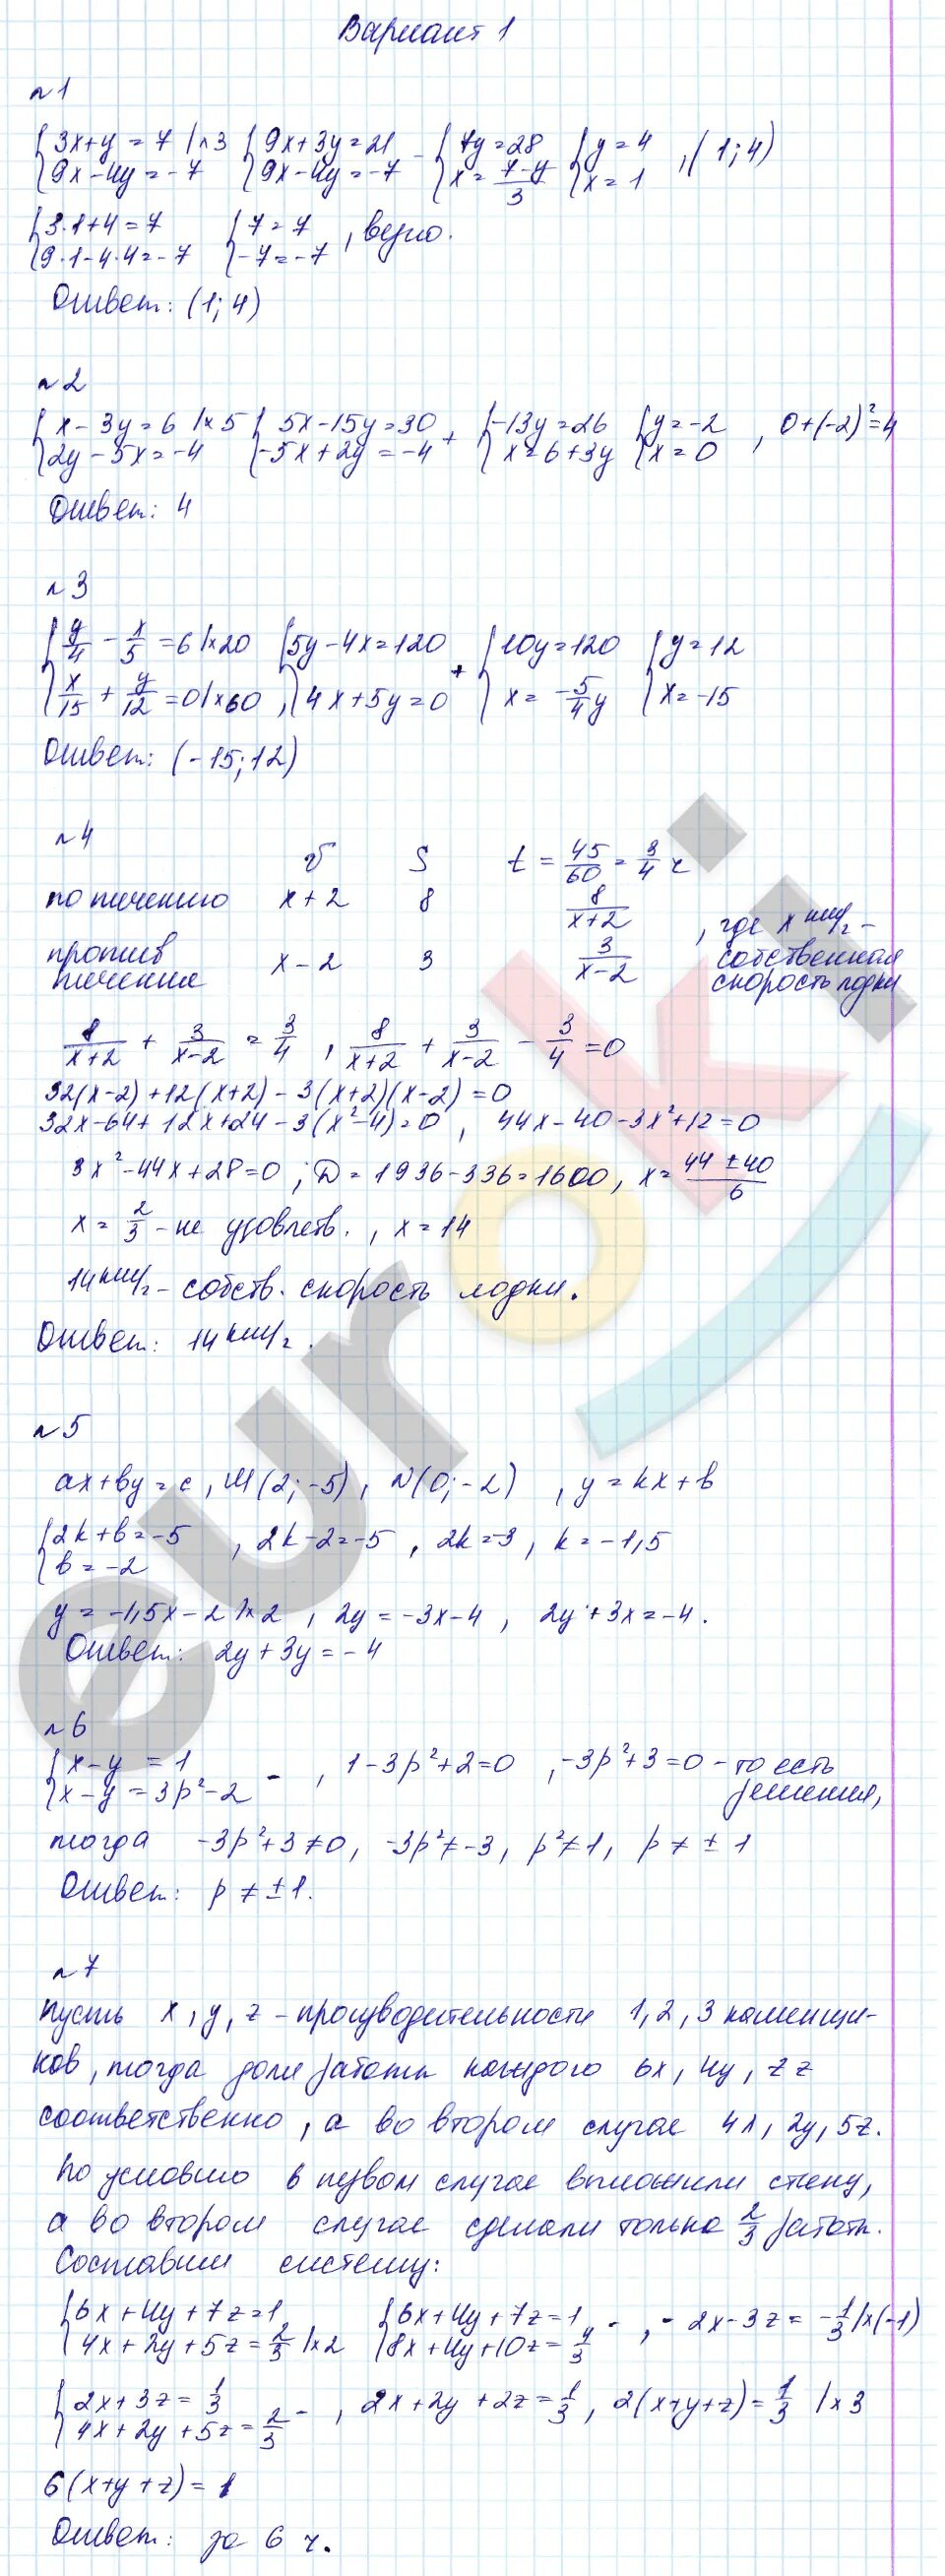 Вариант 1
n1
{3x+y=7 |×3 {9x+3y=21 - {7y=28 {y=4 , (1;4)
{9x-4y=-7 {9x-4y=-7 {x=(7-y)/3 {x=1
{3·1+4=7 {7=7 , верно.
{9·1-4·4=-7 {-7=-7
Ответ: (1;4)
n2
{x-3y=6 |×5 {5x-15y=30 + {-13y=26 {y=-2 , 0+(-2)²=4
{2y-5x=-4 {-5x+2y=-4 {x=6+3y {x=0
Ответ: 4
n3
{y/4 - x/5 =6 |×20 {5y-4x=120 + {10y=120 {y=12
{x/15 + y/12 =0 |×60 , {4x+5y=0 {x=-5/4y {x=-15
Ответ: (-15;12)
n4
v S t = 45/60 = 3/4 ч
по течению x+2 8 8/(x+2)
против течения x-2 3 3/(x-2) , где x км/ч - собственная скорость лодки
8/(x+2) + 3/(x-2) = 3/4 , 8/(x+2) + 3/(x-2) - 3/4 =0
32(x-2)+12(x+2)-3(x+2)(x-2)=0
32x-64+12x+24-3(x²-4)=0 , 44x-40-3x²+12=0
3x²-44x+28=0 ; D=1936-336=1600, x=(44±40)/6
x=2/3 - не удовлетв. , x=14
14 км/ч - собств. скорость лодки.
Ответ: 14 км/ч.
n5
ax+by=c , M(2;-5) , N(0;-2) , y=kx+b
{2k+b=-5 , 2k-2=-5 , 2k=-3 , k=-1,5
{b=-2
y=-1,5x-2 |×2 , 2y=-3x-4 , 2y+3x=-4.
Ответ: 2y+3y=-4
n6
{x-y =1 - , 1-3p²+2=0 , -3p²+3=0 - то есть
{x-y=3p²-2 решения,
тогда -3p²+3≠0, -3p²≠-3, p²≠1, p≠±1
Ответ: p≠±1.
n7
Пусть x, y, z - производительности 1, 2, 3 каменщи-
ков, тогда доли работы каждого 6x, 4y, 7z
соответственно, а во втором случае 4x, 2y, 5z.
По условию в первом случае выложили стену,
а во втором случае сделали только 2/3 работы.
Составим систему:
{6x+4y+7z=1 {6x+4y+7z=1 - , -2x-3z=-1/3 |×(-1)
{4x+2y+5z=2/3 |×2 {8x+4y+10z=4/3
{2x+3z=1/3 - , 2x+2y+2z=1/3 , 2(x+y+z)=1/3 |×3
{4x+2y+5z=2/3
6(x+y+z)=1
Ответ: за 6 ч.
euroki